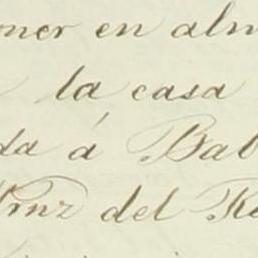 oner en alm
la casa
da á Bab
Cruz del R